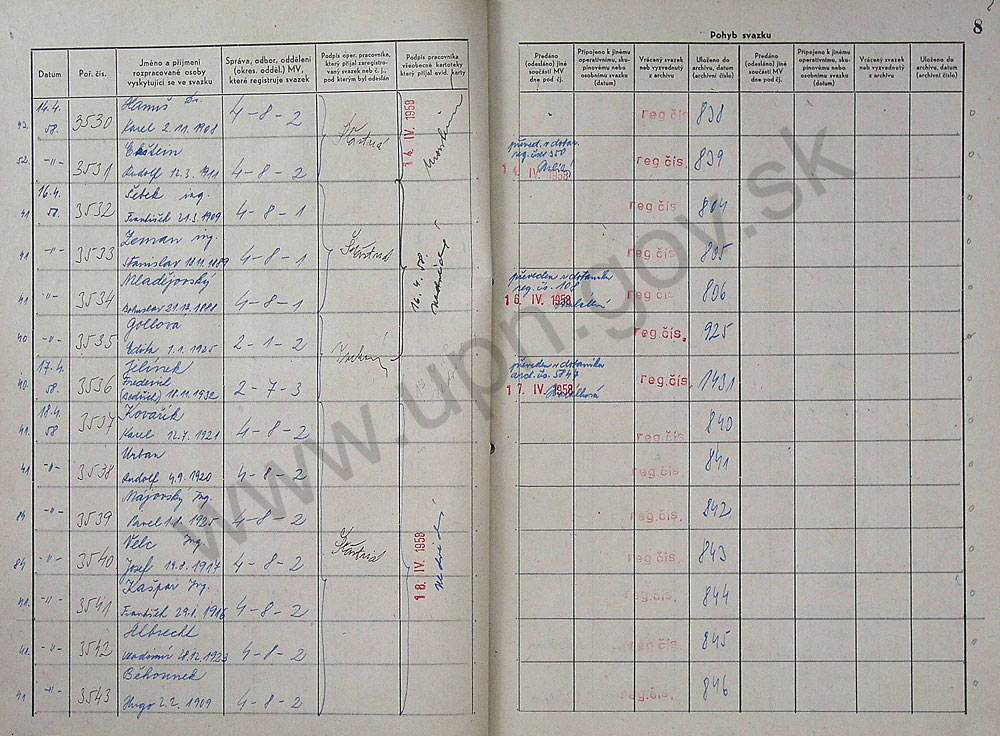 8
Pohyb svazku
Datum
Poř. čís.
Jméno a příjmení
rozpracované osoby
vyskytující se ve svazku
Správa, odbor, oddělení
(okres. odděl.) MV,
které registruje svazek
Podpis oper. pracovníka,
který přijal zaregistro-
vaný svazek neb č. j.,
pod kterým byl odeslán
Podpis pracovníka
všeobecné kartoteky
který přijal evid. karty
Předáno
(odesláno) jiné
součásti MV
dne pod čj.
Připojeno k jinému
operativnímu, sku-
pinovému nebo
osobnímu svazku
(datum)
Vrácený svazek
neb vyzvednutý
z archivu
Uloženo do
archivu, datum
(archivní číslo)
Předáno
(odesláno) jiné
součásti MV
dne pod čj.
Připojeno k jinému
operativnímu, sku-
pinovému nebo
osobnímu svazku
(datum)
Vrácený svazek
neb vyzvednutý
z archivu
Uloženo do
archivu, datum
(archivní číslo)
14.4. 58. 3530 Hamš Dr.
Karel 2.11.1908 4-8-2 14. IV. 1958 reg čís. 838
52. -"- 3531 Ekštein
Rudolf 12.3.1911 4-8-2 převed. v dotav.
reg. čís. 350
14. IV. 1958 reg čís. 839
41 16.4. 58. 3532 Šebek ing.
František 21.3.1909 4-8-1 Šťastná reg čís. 804
41 -"- 3533 Zeman ing.
Stanislav 18.11.1889 4-8-1 16.4.58. reg čís. 805
41 -"- 3534 Mladějovský
Bohuslav 29.12.1888 4-8-1 převeden v dotavníku
reg. čs. 108
16. IV. 1958 reg čís. 806
40 -"- 3535 Gollova
Edita 1.1.1925 2-1-2 reg.čís. 925
40. 17.4. 58. 3536 Jelínek
Frederich
(Bedřich) 18.11.1932 2-7-3 převeden v dotavníku
arch. čs. 5843
17. IV. 1958 reg.čís. 1431
41. 18.4. 58 3537 Kovařík
Karel 12.7.1921 4-8-2 reg.čís. 840
41 -"- 3538 Urban
Rudolf 4.9.1920 4-8-2 reg.čís. 841
84 -"- 3539 Májovský Ing.
Pavel 1.8.1925 4-8-2 reg.čís. 842
84 -"- 3540 Velc Ing.
Josef 19.8.1917 4-8-2 Šťastná 18. IV. 1958 reg.čís. 843
41. -"- 3541 Kašpar Ing.
František 29.8.1916 4-8-2 reg.čís. 844
41. -"- 3542 Albrecht
Vladimír 28.12.1923 4-8-2 reg.čís. 845
41 -"- 3543 Běhounek
Hugo 2.2.1909 4-8-2 reg.čís. 846
www.upn.gov.sk